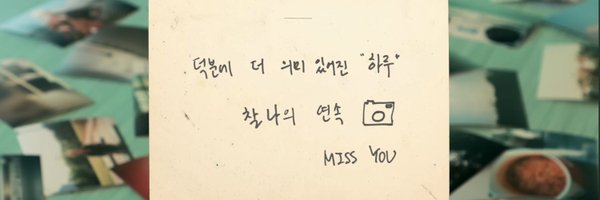 덕분에 더 의미 있어진 "하루"
찰나의 연속
MISS YOU